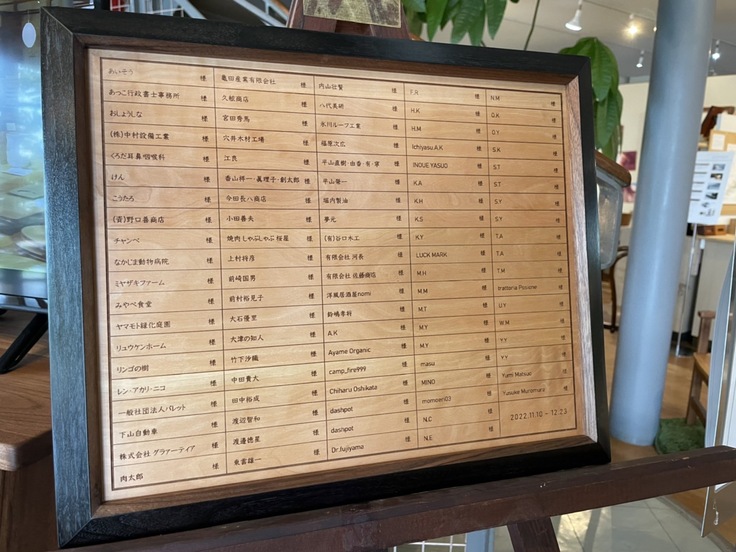 あいそう 様
あっこ行政書士事務所 様
おしょうしな 様
(株)中村設備工業 様
くろだ耳鼻咽喉科 様
けん 様
こうたろ 様
(資)野口喜商店 様
チャンペ 様
なかじま動物病院 様
ミヤザキファーム 様
みやべ食堂 様
ヤマモト緑化庭園 様
リュウケンホーム 様
リンゴの樹 様
レン・アカリ・ニコ 様
一般社団法人パレット 様
下山自動車 様
株式会社 グラァーティア 様
肉太郎 様
亀田産業有限会社 様
久絵商店 様
宮田秀馬 様
穴井木材工場 様
江良 様
香山祥一・眞理子・創太郎 様
今田長八商店 様
小田善央 様
焼肉しゃぶしゃぶ 桜屋 様
上村将彦 様
前崎国男 様
前村裕見子 様
大石優里 様
大津の知人 様
竹下沙織 様
中田貴大 様
田中裕成 様
渡辺智和 様
渡邊徳星 様
東雲雄一 様
内山壮賢 様
八代美研 様
氷川ルーフ工業 様
福原次広 様
平山直樹・由香・有・寧 様
平山榮一 様
堀内製油 様
夢元 様
(有)谷口木工 様
有限会社 河長 様
有限会社 佐藤商店 様
洋風居酒屋nomi 様
鈴嶋孝幹 様
A.K 様
Ayame Organic 様
camp_fire999 様
Chiharu Oshikata 様
dashpot 様
dashpot 様
Dr.fujiyama 様
F.R 様
H.K 様
H.M 様
Ichiyasu.A.K 様
INOUE YASUO 様
K.A 様
K.H 様
K.S 様
K.Y 様
LUCK MARK 様
M.H 様
M.M 様
M.T 様
M.Y 様
M.Y 様
masu 様
MINO 様
momoeri03 様
N.C 様
N.E 様
N.M 様
O.K 様
O.Y 様
S.K 様
S.T 様
S.T 様
S.Y 様
S.Y 様
T.A 様
T.A 様
T.M 様
trattoria Posione 様
U.Y 様
W.M 様
Y.Y 様
Y.Y 様
Yumi Matsue 様
Yusuke Muromare 様
2022.11.10 ~ 12.23